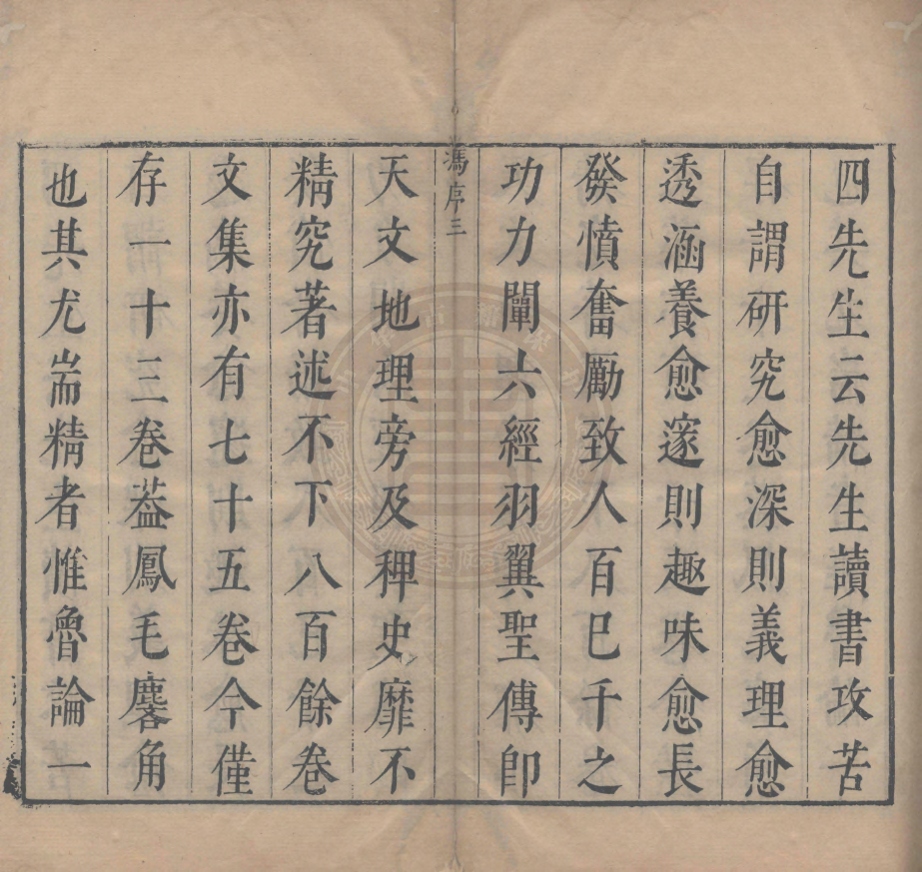 四先生云先生讀書攻苦
自謂研究愈深則義理愈
透涵養愈邃則趣味愈長
發憤奮勵致人百己千之
功力闡六經羽翼聖傳即
馮序三
天文地理旁及稗史靡不
精究著述不下八百餘卷
文集亦有七十五卷今僅
存一十三卷葢鳳毛麐角
也其尤耑精者惟魯論一